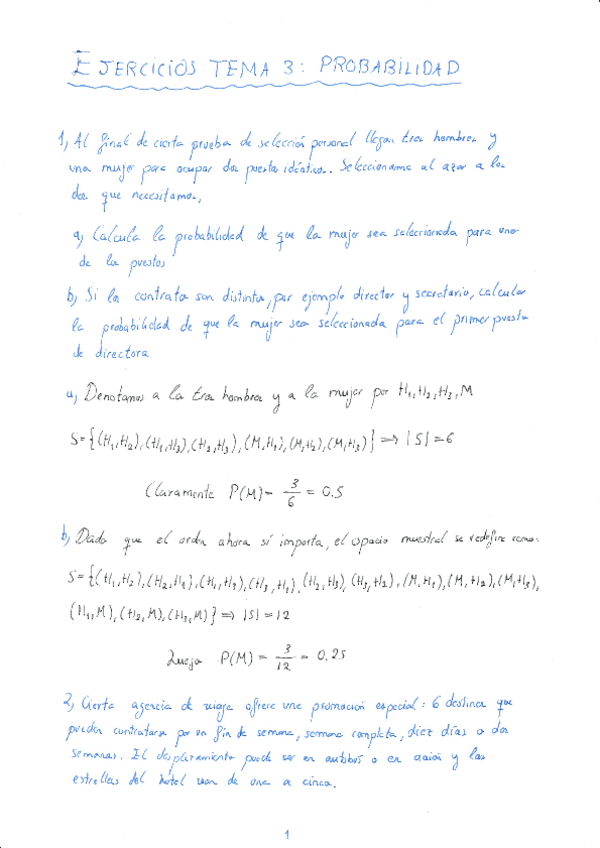 EJERCICIOS TEMA 3: PROBABILIDAD
1) Al final de cierta prueba de selección personal llegan tres hombres y
una mujer para ocupar dos puestos idénticos. Seleccionamos al azar a los
dos que necesitamos,
a) Calcula la probabilidad de que la mujer sea seleccionada para uno
de los puestos
b) Si los contratos son distintos, por ejemplo director y secretario, calcular
la probabilidad de que la mujer sea seleccionada para el primer puesto
de directora
a) Denotamos a los tres hombres y a la mujer por H₁, H₂, H₃, M
S={(H₁,H₂),(H₁,H₃),(H₂,H₃),(M,H₁),(M,H₂),(M,H₃)} ⟹ |S|=6
Claramente P(M)= 3/6 = 0.5
b) Dado que el orden ahora sí importa, el espacio muestral se redefine como:
S={(H₁,H₂),(H₂,H₁),(H₁,H₃),(H₃,H₁),(H₂,H₃),(H₃,H₂),(M,H₁),(M,H₂),(M,H₃),
(H₁,M),(H₂,M),(H₃,M)} ⟹ |S|=12
Luego P(M) = 3/12 = 0.25
2) Cierta agencia de viajes ofrece una promoción especial: 6 destinos que
pueden contratarse por un fin de semana, semana completa, diez días o dos
semanas. El desplazamiento puede ser en autobús o en avión y las
estrellas del hotel van de una a cinco.
1